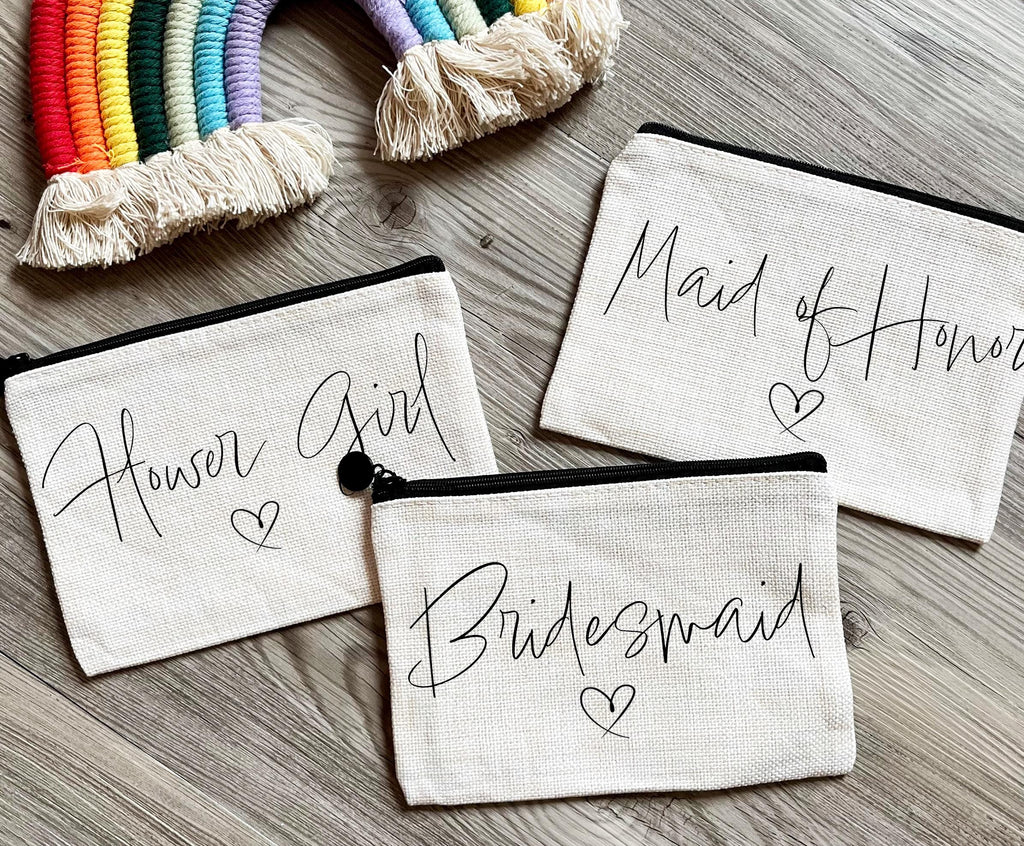 Flower Girl
Maid of Honor
Bridesmaid